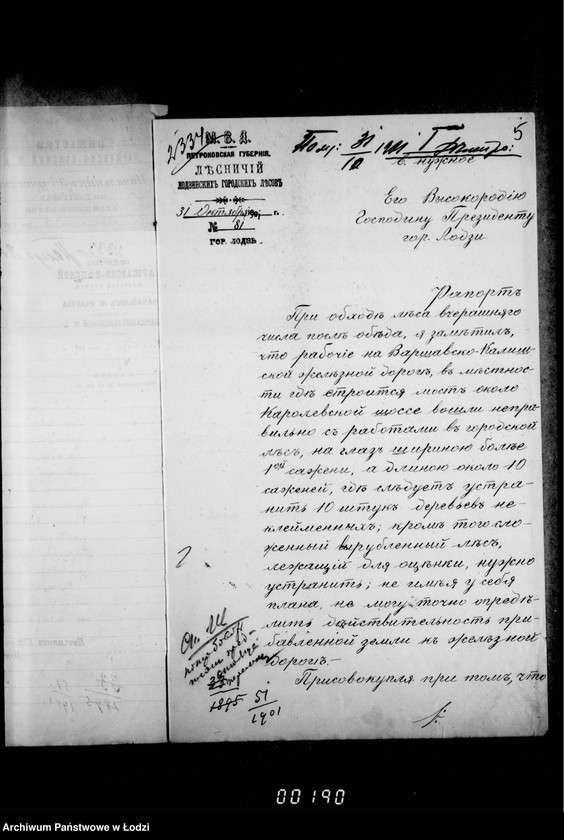 5
2334
М. В. Д.
ПЕТРОКОВСКАЯ ГУБЕРНІЯ.
ЛѢСНИЧІЙ
ЛОДЗИНСКИХЪ ГОРОДСКИХЪ ЛѢСОВЪ
31 Октября 190 г.
№ 81
ГОР. ЛОДЗЬ.
Пол: 31/10 1901
в. нужное
Его Высокородію
Господину Президенту
гор. Лодзи
Рапортъ
При обходѣ лѣса вчерашняго
числа послѣ обѣда, я замѣтилъ,
что рабочіе на Варшавско-Калиш-
ской желѣзной дорогѣ, въ мѣстнос-
ти гдѣ строится мостъ около
Каролевской шоссе вошли непра-
вильно съ работами въ городской
лѣсъ, на глазъ шириною болѣе
1ой сажени, а длиною около 10
саженей, гдѣ слѣдуетъ устра-
нить 10 штукъ деревьевъ не-
клейменныхъ; кромѣ того сло-
женный вырубленный лѣсъ,
лежащій для оцѣнки, нужно
устранить; не имѣя у себя
плана, не могу точно опредѣ-
лить дѣйствительность при-
бавленной земли къ желѣзной
дорогѣ.-
Присовокупляя при томъ, что
1895
51/1901
00190
Archiwum Państwowe w Łodzi